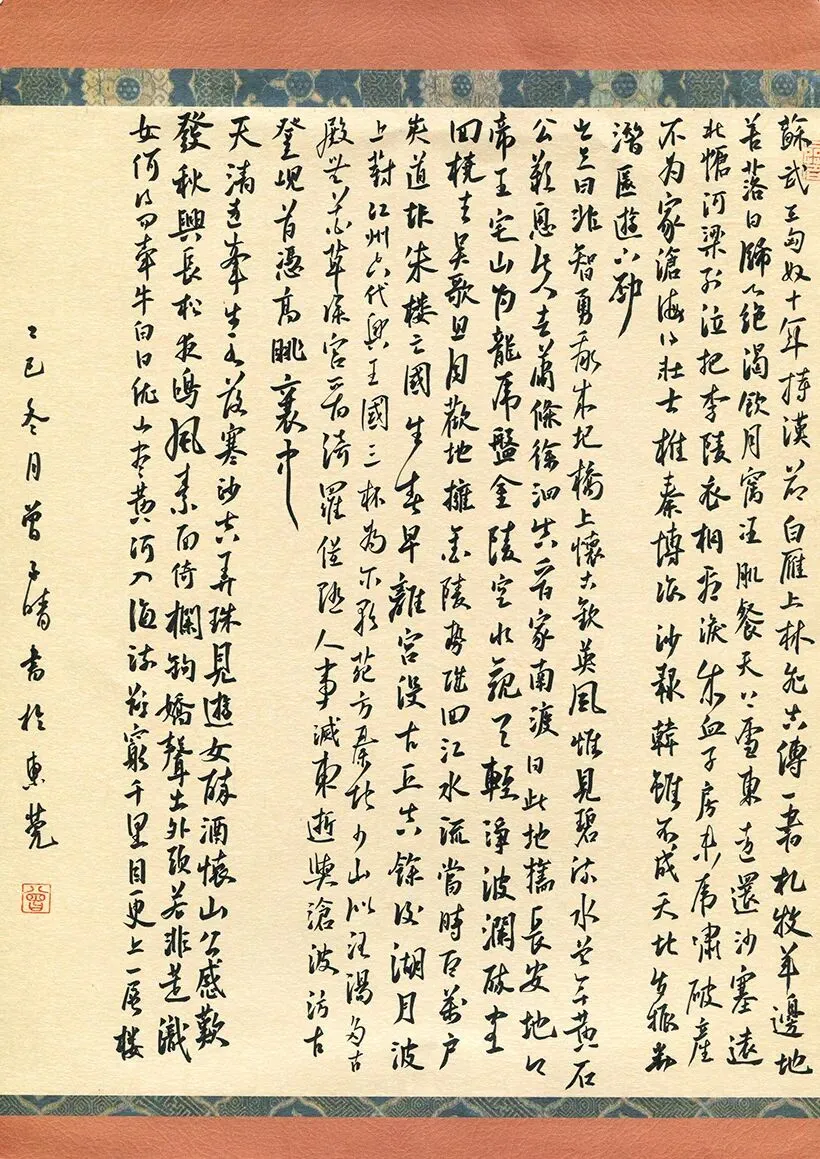 蘇武在匈奴十年持漢節白雁上林飛空傳一書札牧羊邊地
苦落日歸心絕渴飲月窟冰飢餐天上雪東還沙塞遠
北愴河梁別泣把李陵衣相看淚成血子房未虎嘯破產
不为家滄海得壯士椎秦博浪沙報韓雖不成天地皆振動
潛匿遊下邳
豈曰非智勇我來圯橋上懷古欽英風惟見碧流水曾無黃石
公歎息此人去蕭條徐泗空晉家南渡日此地舊長安地即
帝王宅山為龍虎盤金陵空壯觀天淨波瀾醉客
回橈去吳歌且自歡地擁金陵勢城回江水流當時百萬戶
夾道起朱樓亡國生春草離宮沒古丘空餘後湖月波
上對江州六代興亡國三杯為爾歌苑方秦地少山似洛陽多古
殿吳花草深宮晉綺羅併隨人事滅東逝與滄波訪古
登峴首憑高眺襄中
天清遠峰出水落寒沙空弄珠見遊女醉酒懷山公感歎
發秋興長松夜鳴風素面倚欄鉤嬌聲出外頭若非是織
女何得問牽牛白日依山盡黃河入海流欲窮千里目更上一層樓
乙巳冬月曾子晴書於東莞